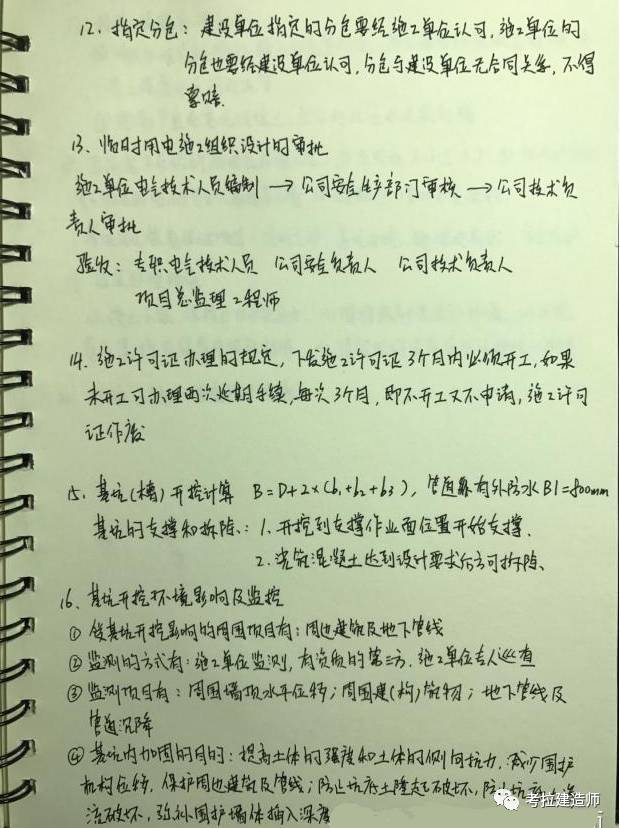 12. 指定分包：建设单位指定的分包要经施工单位认可，施工单位的
分包也要经建设单位认可，分包与建设单位无合同关系，不得
索赔.
13、临时用电施工组织设计的审批
施工单位电气技术人员编制 → 公司安全生产部门审核 → 公司技术负
责人审批
验收：专职电气技术人员 公司安全负责人 公司技术负责人
项目总监理工程师
14. 施工许可证办理的规定，下发施工许可证3个月内必须开工，如果
未开工可办理两次延期手续，每次3个月，即不开工又不申请，施工许可
证作废
15、基坑(槽)开挖计算 B=D+2×(b1+b2+b3)，管道有外防水B1=800mm
基坑的支撑和拆除：1. 开挖到支撑作业面位置开始支撑.
2. 浇筑混凝土达到设计要求后方可拆除、
16、基坑开挖环境影响及监控
① 受基坑开挖影响的周围项目有：周边建筑及地下管线
② 监测的方式有：施工单位监测，有资质的第三方，施工单位专人巡查
③ 监测项目有：周围墙顶水平位移；周围建(构)筑物；地下管线及
管道沉降
④ 基坑内加固的目的：提高土体的强度和土体的侧向抗力，减少围护
机构位移，保护周边建筑及管线；防止坑底土隆起破坏，防止坑底
流破坏，弥补围护墙体插入深度
考拉建造师